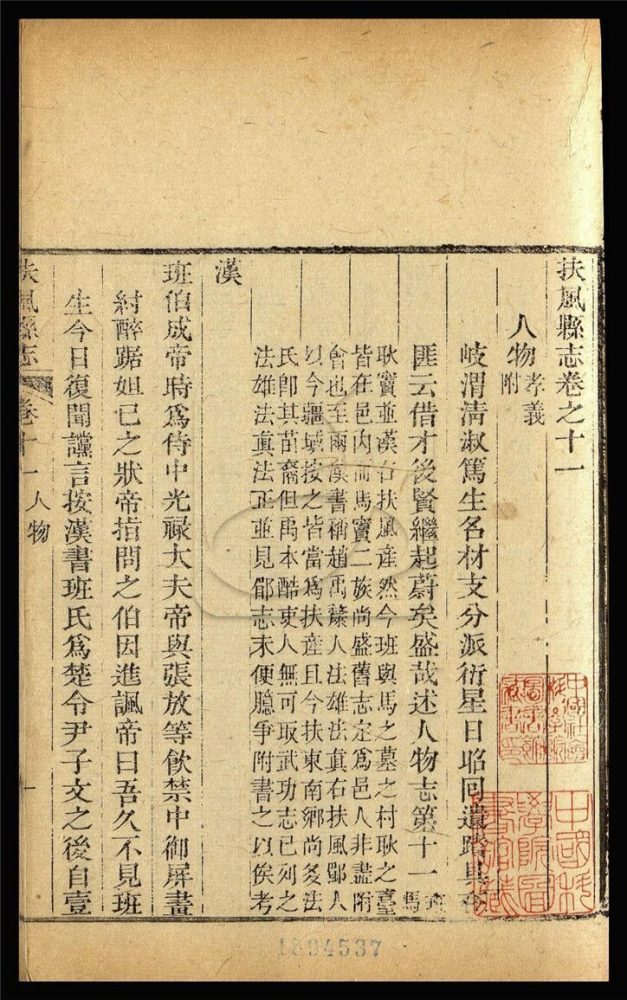 扶風縣志卷之十一
人物孝義附
岐渭淸淑篤生名材支分派衍星日昭回遺蹟具
匪云借才後賢繼起蔚矣盛哉述人物志第十一班馬
耿竇並漢右扶風產然今班與馬之墓之村耿之臺
皆在邑內而馬竇二族尚盛舊志定爲邑人非盡附
會也至兩漢書稱趙禹斄人法雄法眞右扶風郿人
以今疆域按之皆當爲扶產且今扶東南鄉尚多法
氏卽其苗裔但禹本酷吏人無可取武功志已列之
法雄法眞法正並見郿志未便臆爭附書之以俟考
漢
班伯成帝時爲侍中光祿大夫帝與張放等飲禁中御屏畫
紂醉踞妲己之狀帝指問之伯因進諷帝曰吾久不見班
生今日復聞讜言按漢書班氏爲楚令尹子文之後自壹
扶風縣志
卷十一
人物
一
1894537